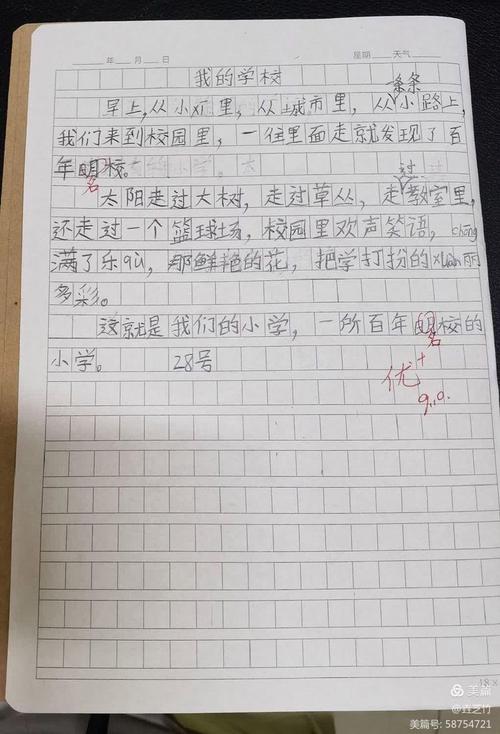 年 月 日 星期 天气
我的学校
条条
早上,从小区里,从城市里,从小路上,
我们来到校园里,一往里面走就发现了百
年明校。
名
过
太阳走过大树,走过草丛,走教室里,
还走过一个篮球场,校园里欢声笑语,chōng
满了乐qù,那鲜艳的花,把学打扮的xuàn丽
多彩。
这就是我们的小学,一所百年明校的
名
小学。 28号
优+
9.10.
18×
美篇
垚芝竹
美篇号: 58754721